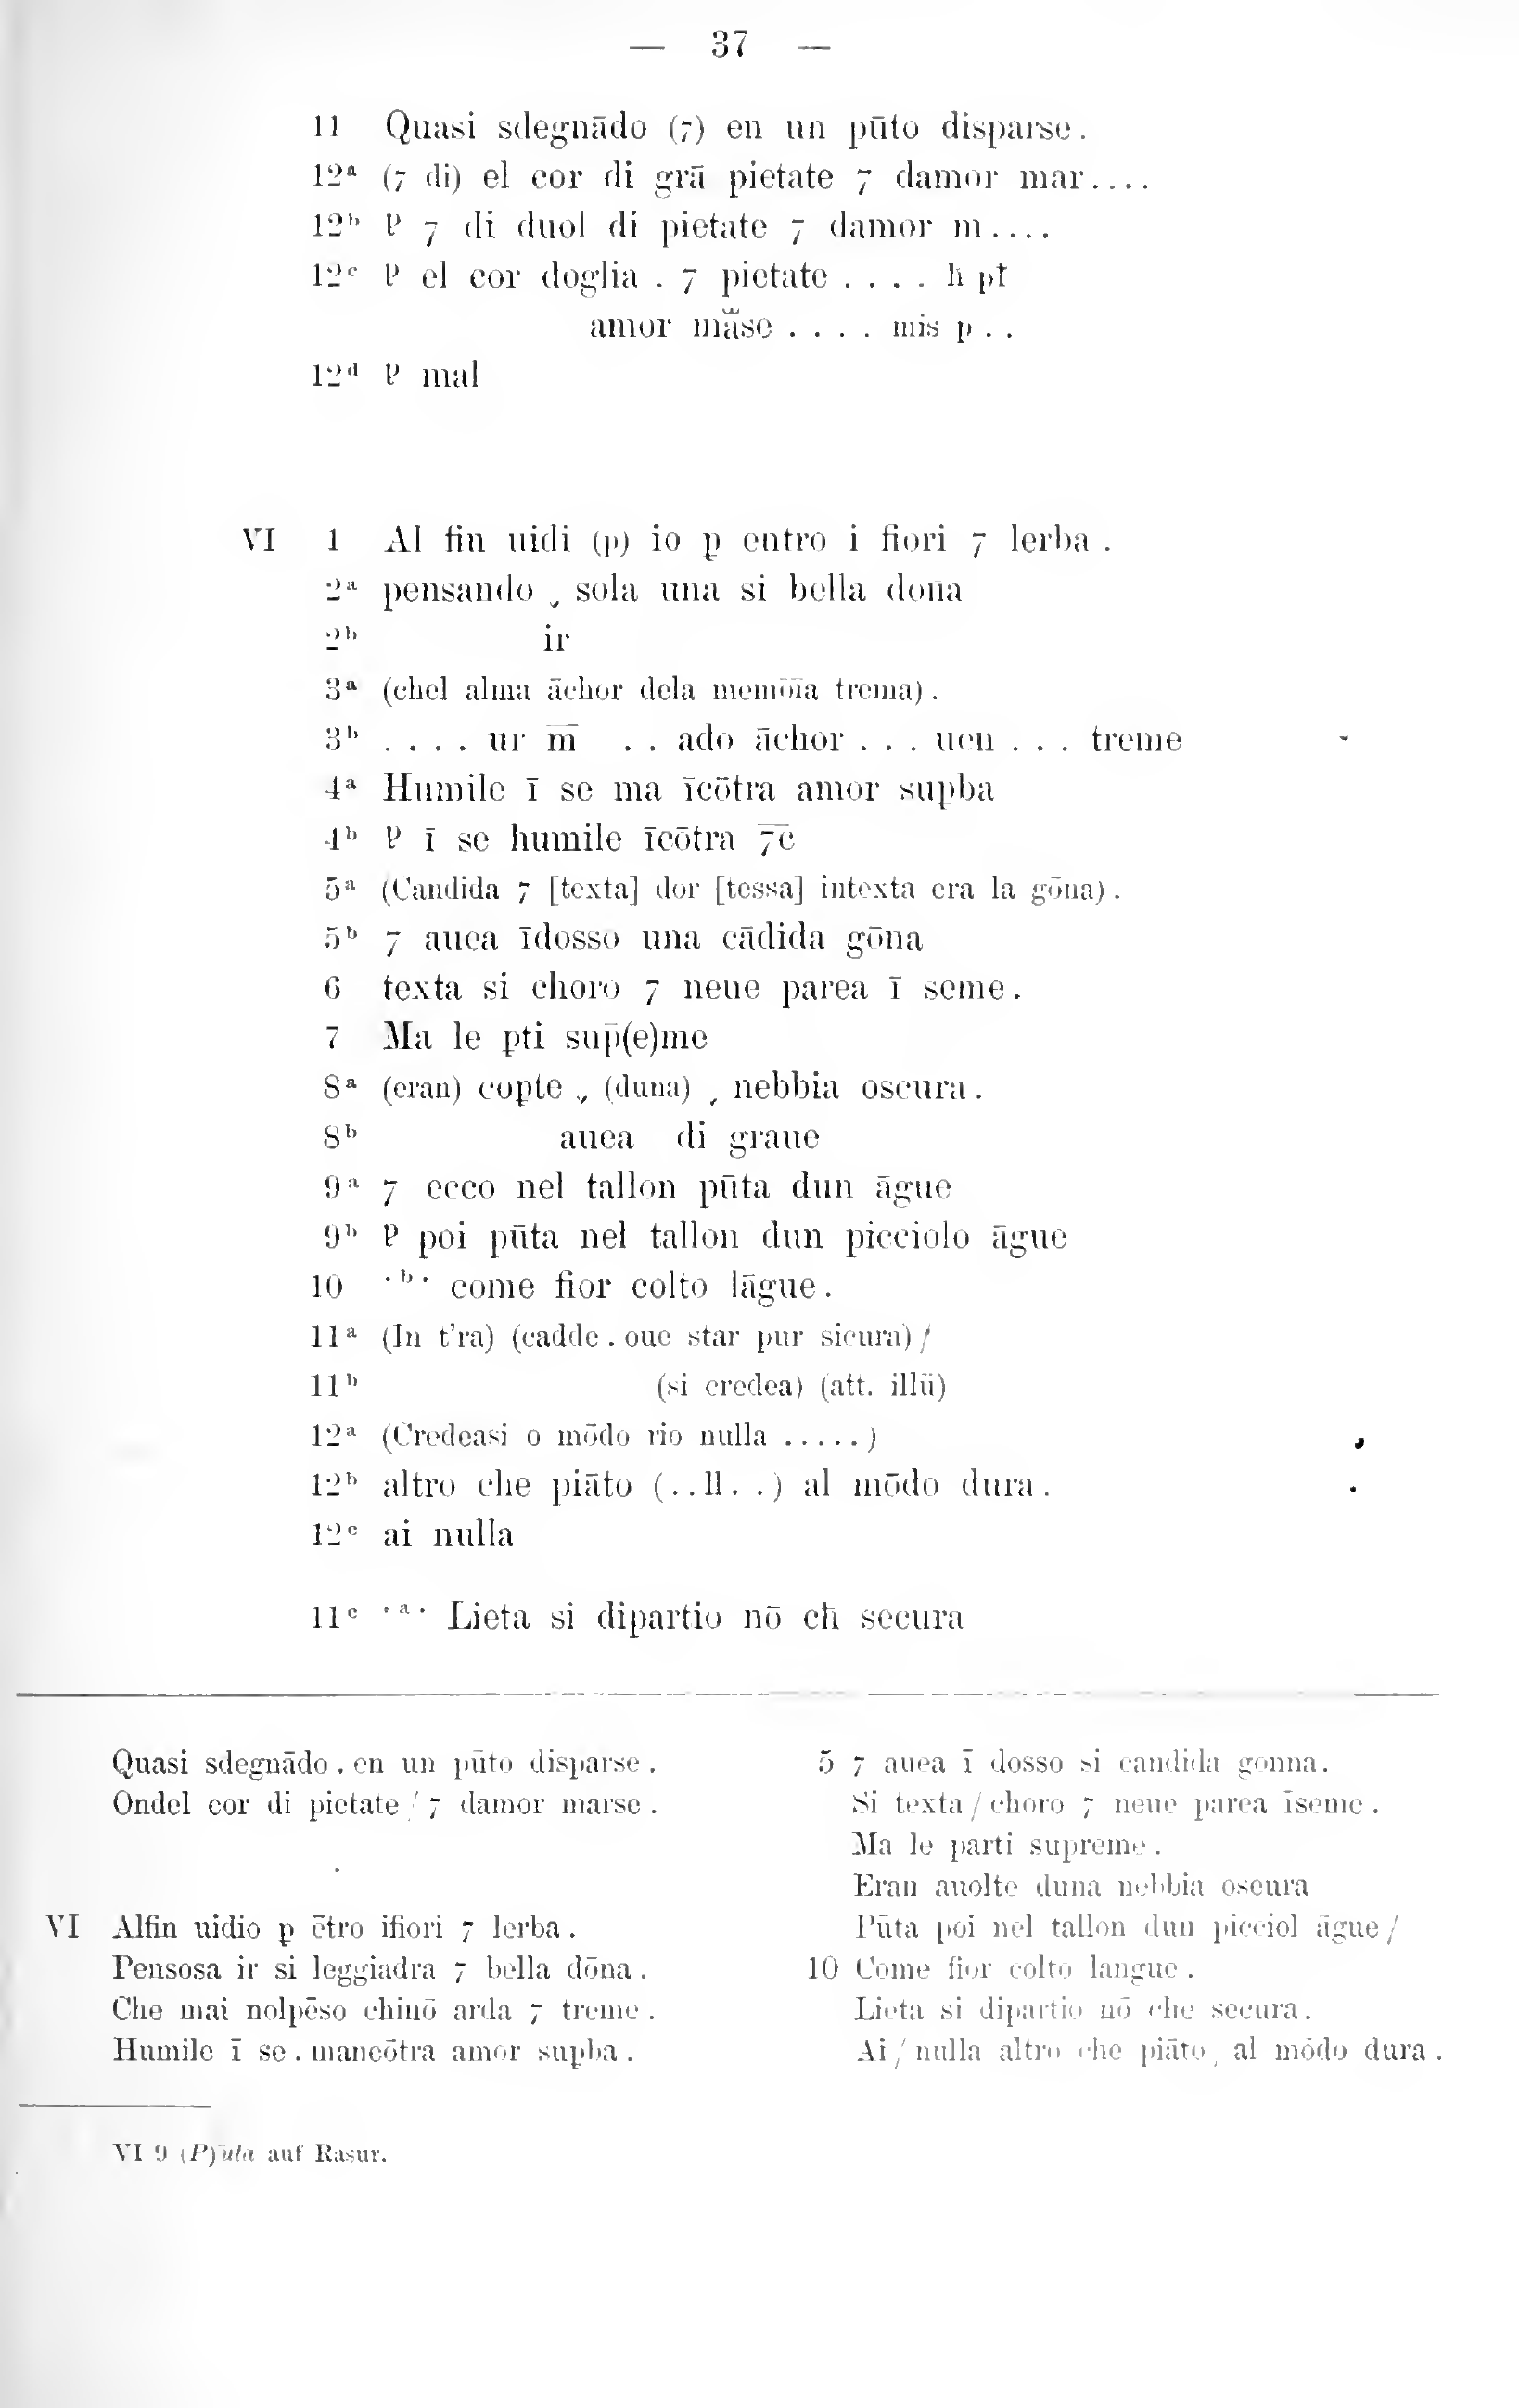 — 37 —
11 Quasi sdegnādo (⁊) en un pūto disparse.
12ᵃ (⁊ di) el cor di grā pietate ⁊ damor mar....
12ᵇ ⁊ di duol di pietate ⁊ damor m....
12ᶜ el cor doglia . ⁊ pietate . . . .
amor . . . . mis p . .
12ᵈ mal
VI 1 Al fin uidi (p) io p entro i fiori ⁊ lerba .
2ᵃ pensando , sola una si bella don̄a
2ᵇ ir
3ᵃ (chel alma āchor dela trema) .
3ᵇ . . . . ur m̄ . . ado āchor . . . uen . . . treme
4ᵃ Humile ī se ma īcōtra amor supba
4ᵇ ī se humile īcōtra ⁊c̄
5ᵃ (Candida ⁊ [texta] dor [tessa] intexta era la gōna) .
5ᵇ ⁊ auea īdosso una cādida gōna
6 texta si choro ⁊ neue parea ī seme .
7 Ma le pti sup̄(e)me
8ᵃ (eran) copte ,, (duna) , nebbia oscura .
8ᵇ auea di graue
9ᵃ ⁊ ecco nel tallon pūta dun āgue
9ᵇ poi pūta nel tallon dun picciolo āgue
10 ·ᵇ· come fior colto lāgue .
11ᵃ (In t'ra) (cadde . oue star pur sicura) /
11ᵇ (si credea) (att. illū)
12ᵃ (Credeasi o mōdo rio nulla .....)
12ᵇ altro che piāto (..ll. .) al mōdo dura .
12ᶜ ai nulla
11ᶜ ·ᵃ· Lieta si dipartio nō ch̄ secura
Quasi sdegnādo . en un pūto disparse .
Ondel cor di pietate / ⁊ damor marse .
VI Alfin uidio p ētro ifiori ⁊ lerba .
Pensosa ir si leggiadra ⁊ bella dōna .
Che mai nolpēso chinō arda ⁊ treme .
Humile ī se . mancōtra amor supba .
5 ⁊ auea ī dosso si candida gonna .
Si texta / choro ⁊ neue parea īseme .
Ma le parti supreme .
Eran auolte duna nebbia oscura
Pūta poi nel tallon dun picciol āgue /
10 Come fior colto langue .
Lieta si dipartio nō che secura .
Ai / nulla altro che piāto, al mōdo dura .
VI 9 (P)ūta auf Rasur.